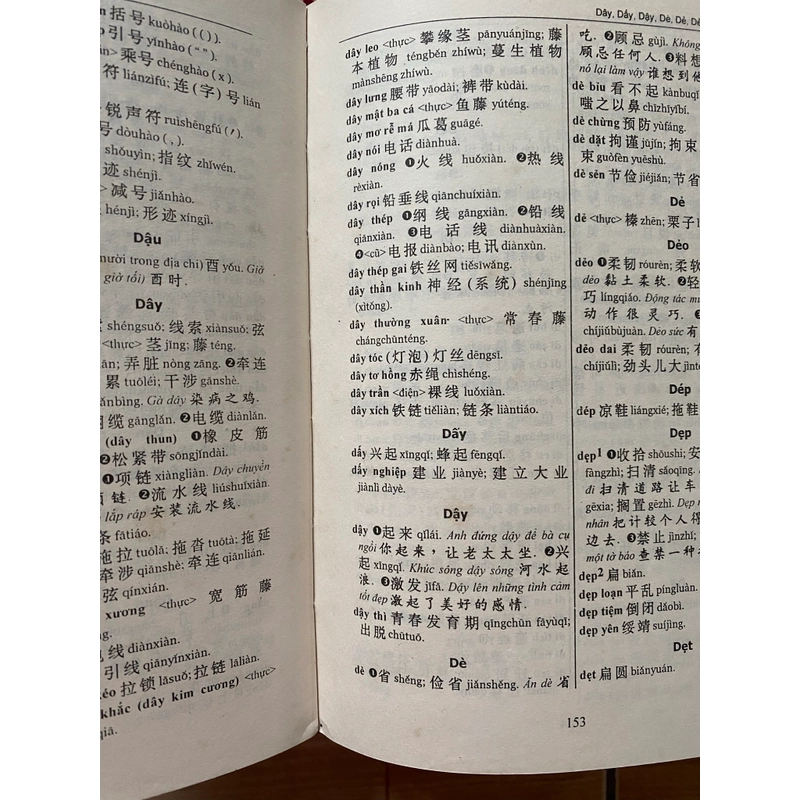 n 括号 kuòhào ( ( ) ).
o 引号 yǐnhào ( “” ).
n> 乘号 chénghào ( x ).
符 liánzìfú; 连 (字) 号 lián
> 锐声符 ruìshēngfú ( ′ ).
号 dòuhào ( , ).
shǒuyìn; 指纹 zhǐwén.
迹 shénjì.
> 减号 jiǎnhào.
hénjì; 形迹 xíngjì.
Dậu
mười trong địa chi) 酉 yǒu. Giờ
giờ tối) 酉时.
Dây
shéngsuǒ; 线索 xiànsuǒ; 弦
<thực> 茎 jīng; 藤 téng.
n; 弄脏 nòng zāng. ❷牵连
累 tuōlěi; 干涉 gānshè.
nbìng. Gà dây 染病之鸡.
缆 gānglǎn. ❷电缆 diànlǎn.
(dây thun) ❶橡皮筋
❷松紧带 sōngjǐndài.
❶项链 xiàngliàn. Dây chuyền
链. ❷流水线 liúshuǐxiàn.
lắp ráp 安装流水线.
条 fātiáo.
拖拉 tuōlā; 拖沓 tuōtà; 拖延
牵涉 qiānshè; 牵连 qiānlián.
弦 qínxián.
xương <thực> 宽筋藤
电线 diànxiàn.
引线 qiānyǐnxiàn.
kéo 拉锁 lāsuǒ; 拉链 lāliàn.
khắc (dây kim cương) <thực>
giā.
Dây, Dấy, Dậy, Dè, Dẻ, Dẽ
dây leo <thực> 攀缘茎 pānyuánjīng; 藤
本植物 téngběn zhíwù; 蔓生植物
mànshēng zhíwù.
dây lưng 腰带 yāodài; 裤带 kùdài.
dây mật ba cá <thực> 鱼藤 yúténg.
dây mơ rễ má 瓜葛 guāgé.
dây nói 电话 diànhuà.
dây nóng ❶火线 huǒxiàn. ❷热线
rèxiàn.
dây rọi 铅垂线 qiānchuíxiàn.
dây thép ❶纲线 gāngxiàn. ❷铅线
qiánxiàn. ❸电话线 diànhuàxiàn.
❹<cũ> 电报 diànbào; 电讯 diànxùn.
dây thép gai 铁丝网 tiěsīwǎng.
dây thần kinh 神经 (系统) shénjīng
(xìtǒng).
dây thường xuân <thực> 常春藤
chángchūnténg.
dây tóc (灯泡) 灯丝 dēngsī.
dây tơ hồng 赤绳 chìshéng.
dây trần <điện> 裸线 luǒxiàn.
dây xích 铁链 tiěliàn; 链条 liàntiáo.
Dấy
dấy 兴起 xīngqǐ; 蜂起 fēngqǐ.
dấy nghiệp 建业 jiànyè; 建立大业
jiànlì dàyè.
Dậy
dậy ❶起来 qǐlái. Anh đứng dậy để bà cụ
ngồi 你起来，让老太太坐. ❷兴
起 xīngqǐ. Khúc sông dậy sóng 河水起
浪. ❸激发 jīfā. Dậy lên những tình cảm
tốt đẹp 激起了美好的感情.
dậy thì 青春发育期 qīngchūn fāyùqī;
出脱 chūtuō.
Dè
dè ❶省 shěng; 俭省 jiǎnshěng. Ăn dè 省
吃. ❷顾忌 gùjì. Không
顾忌任何人. ❸料想
nó lại làm vậy 谁想到他
dè bỉu 看不起 kànbuqǐ
嗤之以鼻 chīzhīyǐbí.
dè chừng 预防 yùfáng.
dè dặt 拘谨 jūjǐn; 拘束
束 guòfèn yuēshù.
dè sẻn 节俭 jiéjiǎn; 节省
Dẻ
dẻ <thực> 榛 zhēn; 栗子
Dẻo
dẻo ❶柔韧 róurèn; 柔
dẻo 黏土柔软. ❷轻
巧 língqiǎo. Động tác mú
动作很灵巧.
chíjiǔbùjuàn. Dẻo sức 有
dẻo dai 柔韧 róurèn; 有
chíjiǔlì; 劲头儿大
Dép
dép 凉鞋 liángxié; 拖鞋
Dẹp
dẹp¹ ❶收拾 shōushi; 安
fàngzhì; 扫清 sǎoqīng.
đi 扫清道路让车
gēxia; 搁置 gēzhì. Dẹp
nhân 把计较个人得
边去. ❸禁止 jìnzhǐ
một tờ báo 查禁一种
dẹp² 扁 biǎn.
dẹp loạn 平乱 píngluàn.
dẹp tiệm 倒闭 dǎobì.
dẹp yên 绥靖 suíjìng.
Dẹt
dẹt 扁圆 biǎnyuán.
153